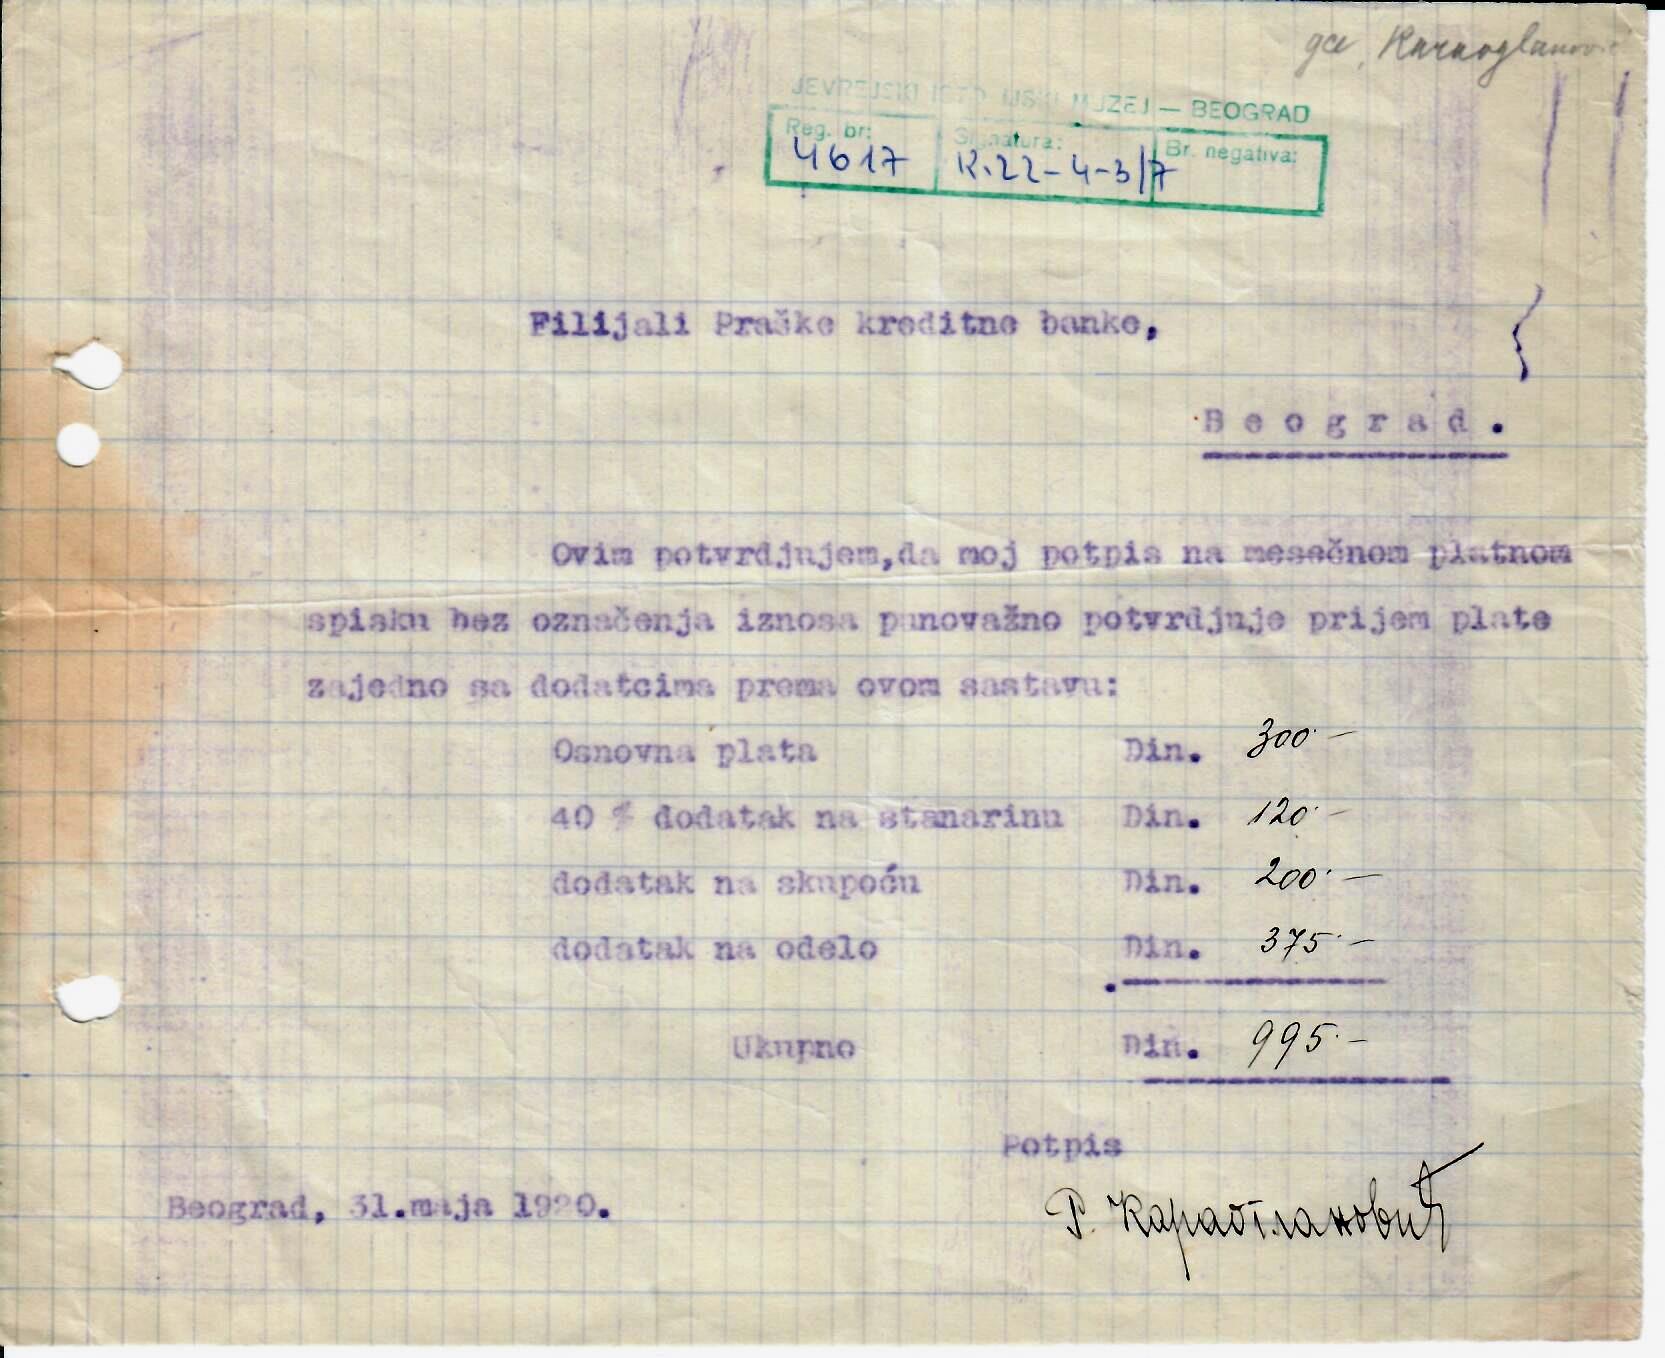 gce. Karaoglanović
JEVREJSKI ISTORIJSKI MUZEJ — BEOGRAD
Reg. br: Signatura: Br. negativa:
4617 K.22-4-3/7
Filijali Praške kreditne banke,
Beograd.
Ovim potvrdjujem,da moj potpis na mesečnom platnom
spisku bez označenja iznosa punovažno potvrdjuje prijem plate
zajedno sa dodatcima prema ovom sastavu:
Osnovna plata Din. 300.—
40 % dodatak na stanarinu Din. 120.—
dodatak na skupoću Din. 200.—
dodatak na odelo Din. 375.—
Ukupno Din. 995.—
Potpis
Beograd, 31.maja 1920.
Р. Караогlановић